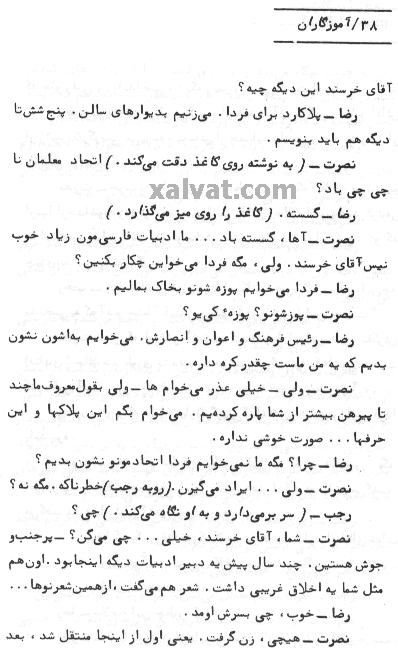 ۳۸/آموزگاران
آقای خرسند این دیگه چیه؟
رضا ــ پلاکارد برای فردا. می‌زنیم بدیوارهای سالن. پنج شش‌تا
دیگه هم باید بنویسم.
نصرت ــ ( به نوشته روی کاغذ دقت می‌کند. ) اتحاد معلمان نا
چی چی باد؟
xalvat.com
رضا ــ گسسته. ( کاغذ را روی میز می‌گذارد. )
نصرت ــ آها، گسسته باد... ما ادبیات فارسی‌مون زیاد خوب
نیس آقای خرسند. ولی، مگه فردا می‌خواین چکار بکنین؟
رضا ــ فردا می‌خوایم پوزه شونو بخاک بمالیم.
نصرت ــ پوزشونو؟ پوزهٔ کی‌یو؟
رضا ــ رئیس فرهنگ و اعوان و انصارش. می‌خوایم به‌اشون نشون
بدیم که یه من ماست چقدر کره داره.
نصرت ــ ولی ــ خیلی عذر می‌خوام ها ــ ولی بقول‌معروف‌ماچند
تا پیرهن بیشتر از شما پاره کرده‌یم. می‌خوام بگم این پلاکها و این
حرفها... صورت خوشی نداره.
رضا ــ چرا؟ مگه ما نمی‌خوایم فردا اتحادمونو نشون بدیم؟
نصرت ــ ولی... ایراد می‌گیرن. (روبه رجب) خطرناکه. مگه نه؟
رجب ــ ( سر برمی‌دارد و به او نگاه می‌کند. ) چی؟
نصرت ــ شما، آقای خرسند، خیلی... چی می‌گن؟ ــ پرجنب‌و
جوش هستین. چند سال پیش یه دبیر ادبیات دیگه اینجابود. اون‌هم
مثل شما یه اخلاق غریبی داشت. شعر هم‌می‌گفت، ازهمین‌شعرنوها...
رضا ــ خوب، چی بسرش اومد.
نصرت ــ هیچی، زن گرفت. یعنی اول از اینجا منتقل شد، بعد